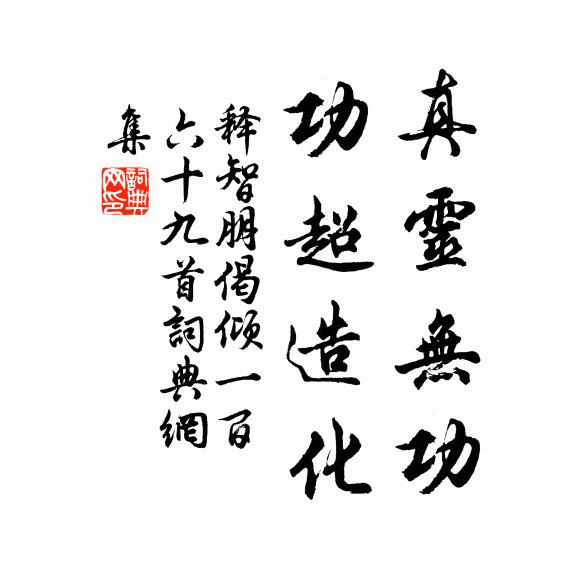 真靈無功
功超造化
释智朋偈傾一百
六十九首詞典網
集
詞典
网印